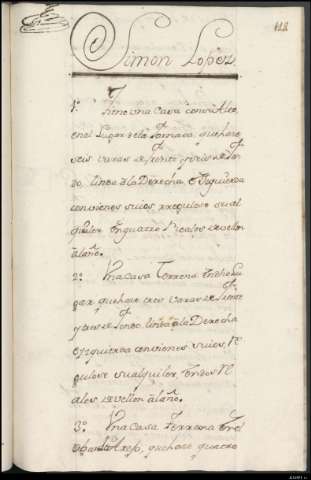 118
Simon Lopez
1º Tiene una Casa con su Alto,
en el Lugar de la que hace
seis varas de frente y seis de fon
do, linda a la Derecha, e Izquierda
con vienes suios, y regulose su al
quiler En quatro Reales de vellon
al año.
2º Una Casa Terrena En dho Lu
gar, que hace tres varas de frente
y tres de fondo, linda a la Derecha
e Izquierda con vienes suios, Re
gulose su alquiler, En dos Re
ales de vellon al año.
3º Una Casa Terrena En el
que hace quatro